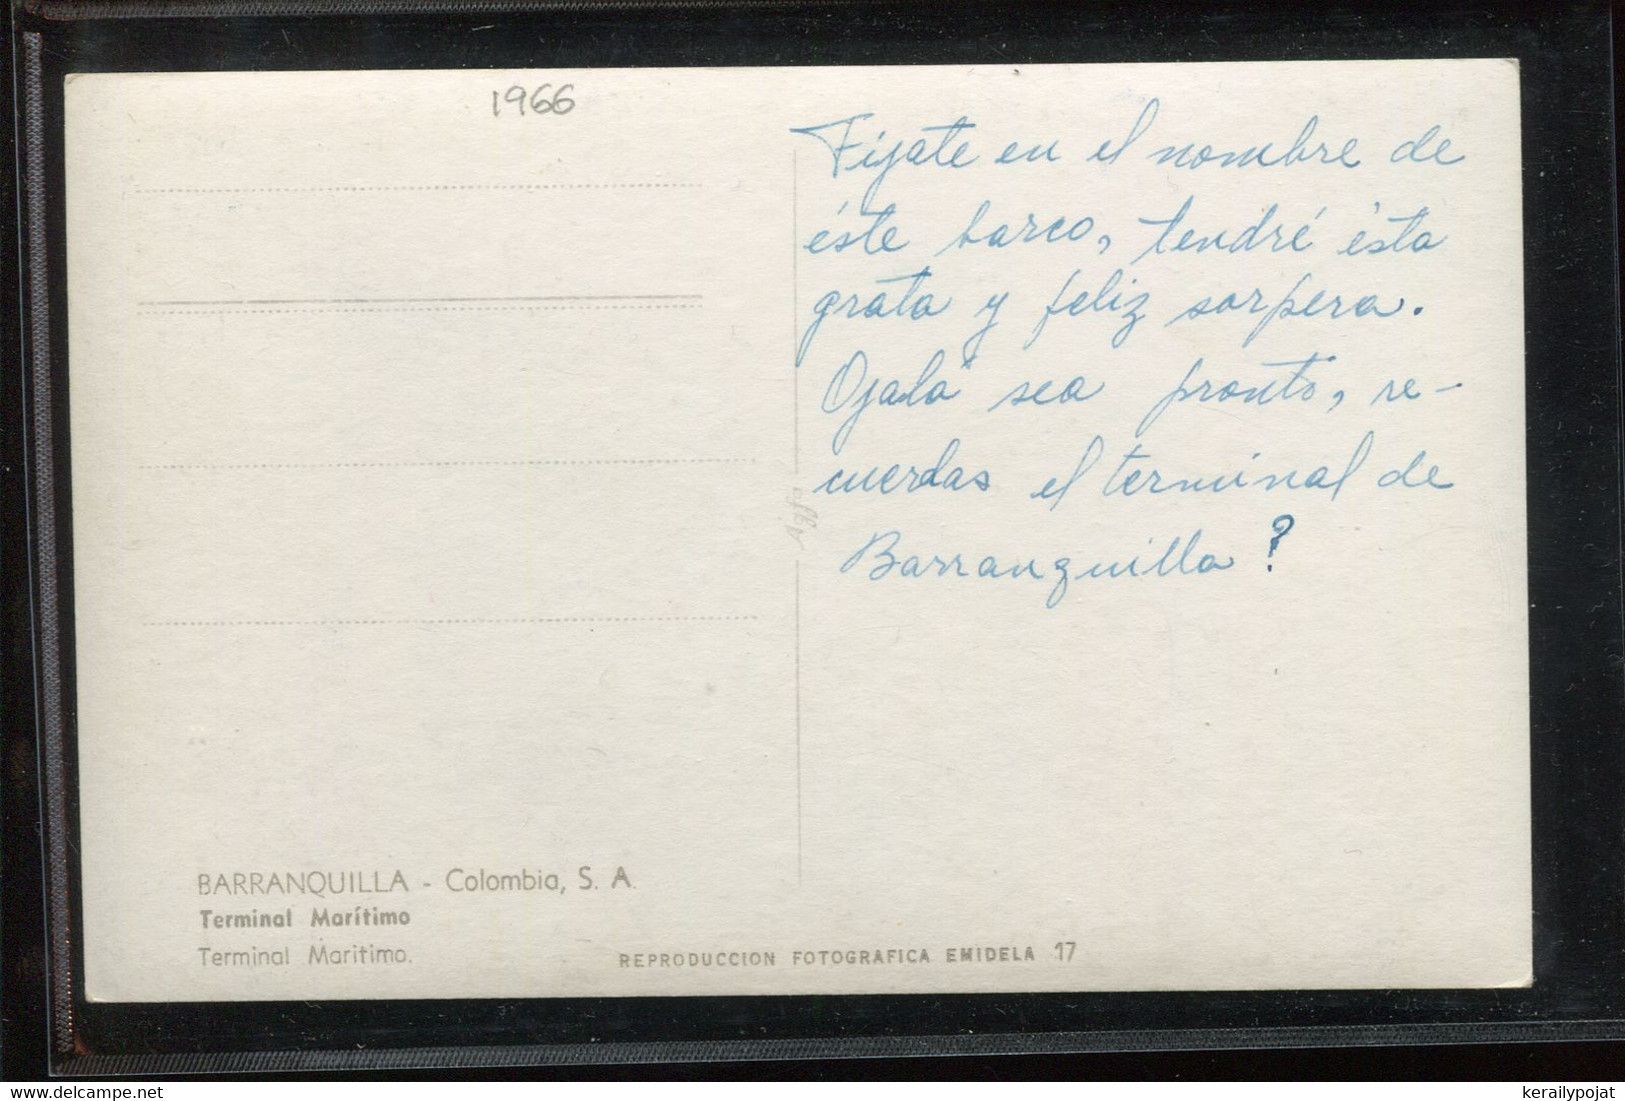 1966
Fijate en el nombre de
éste barco, tendré ésta
grata y feliz sorpera.
Ojalá sea pronto, re-
cuerdas el terminal de
Barranquilla?
BARRANQUILLA - Colombia, S. A.
Terminal Marítimo
Terminal Maritimo.
REPRODUCCION FOTOGRAFICA EMIDELA 17
www.delcampe.net
kerailypojat